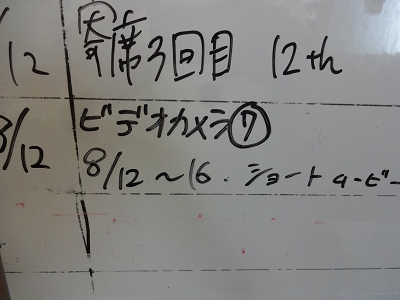 /12 第3回目 12th
8/12 ビデオカメラ⑦
8/12〜16. ショートムービー